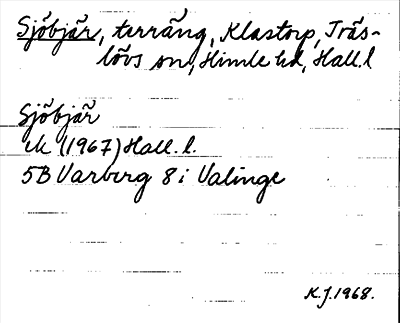 Sjöbjär, terräng, Klastorp, Träs-
lövs sn, Himle hd, Hall.l
Sjöbjär
ek (1967) Hall. l.
5B Varberg 8 i Valinge
K.J. 1968.